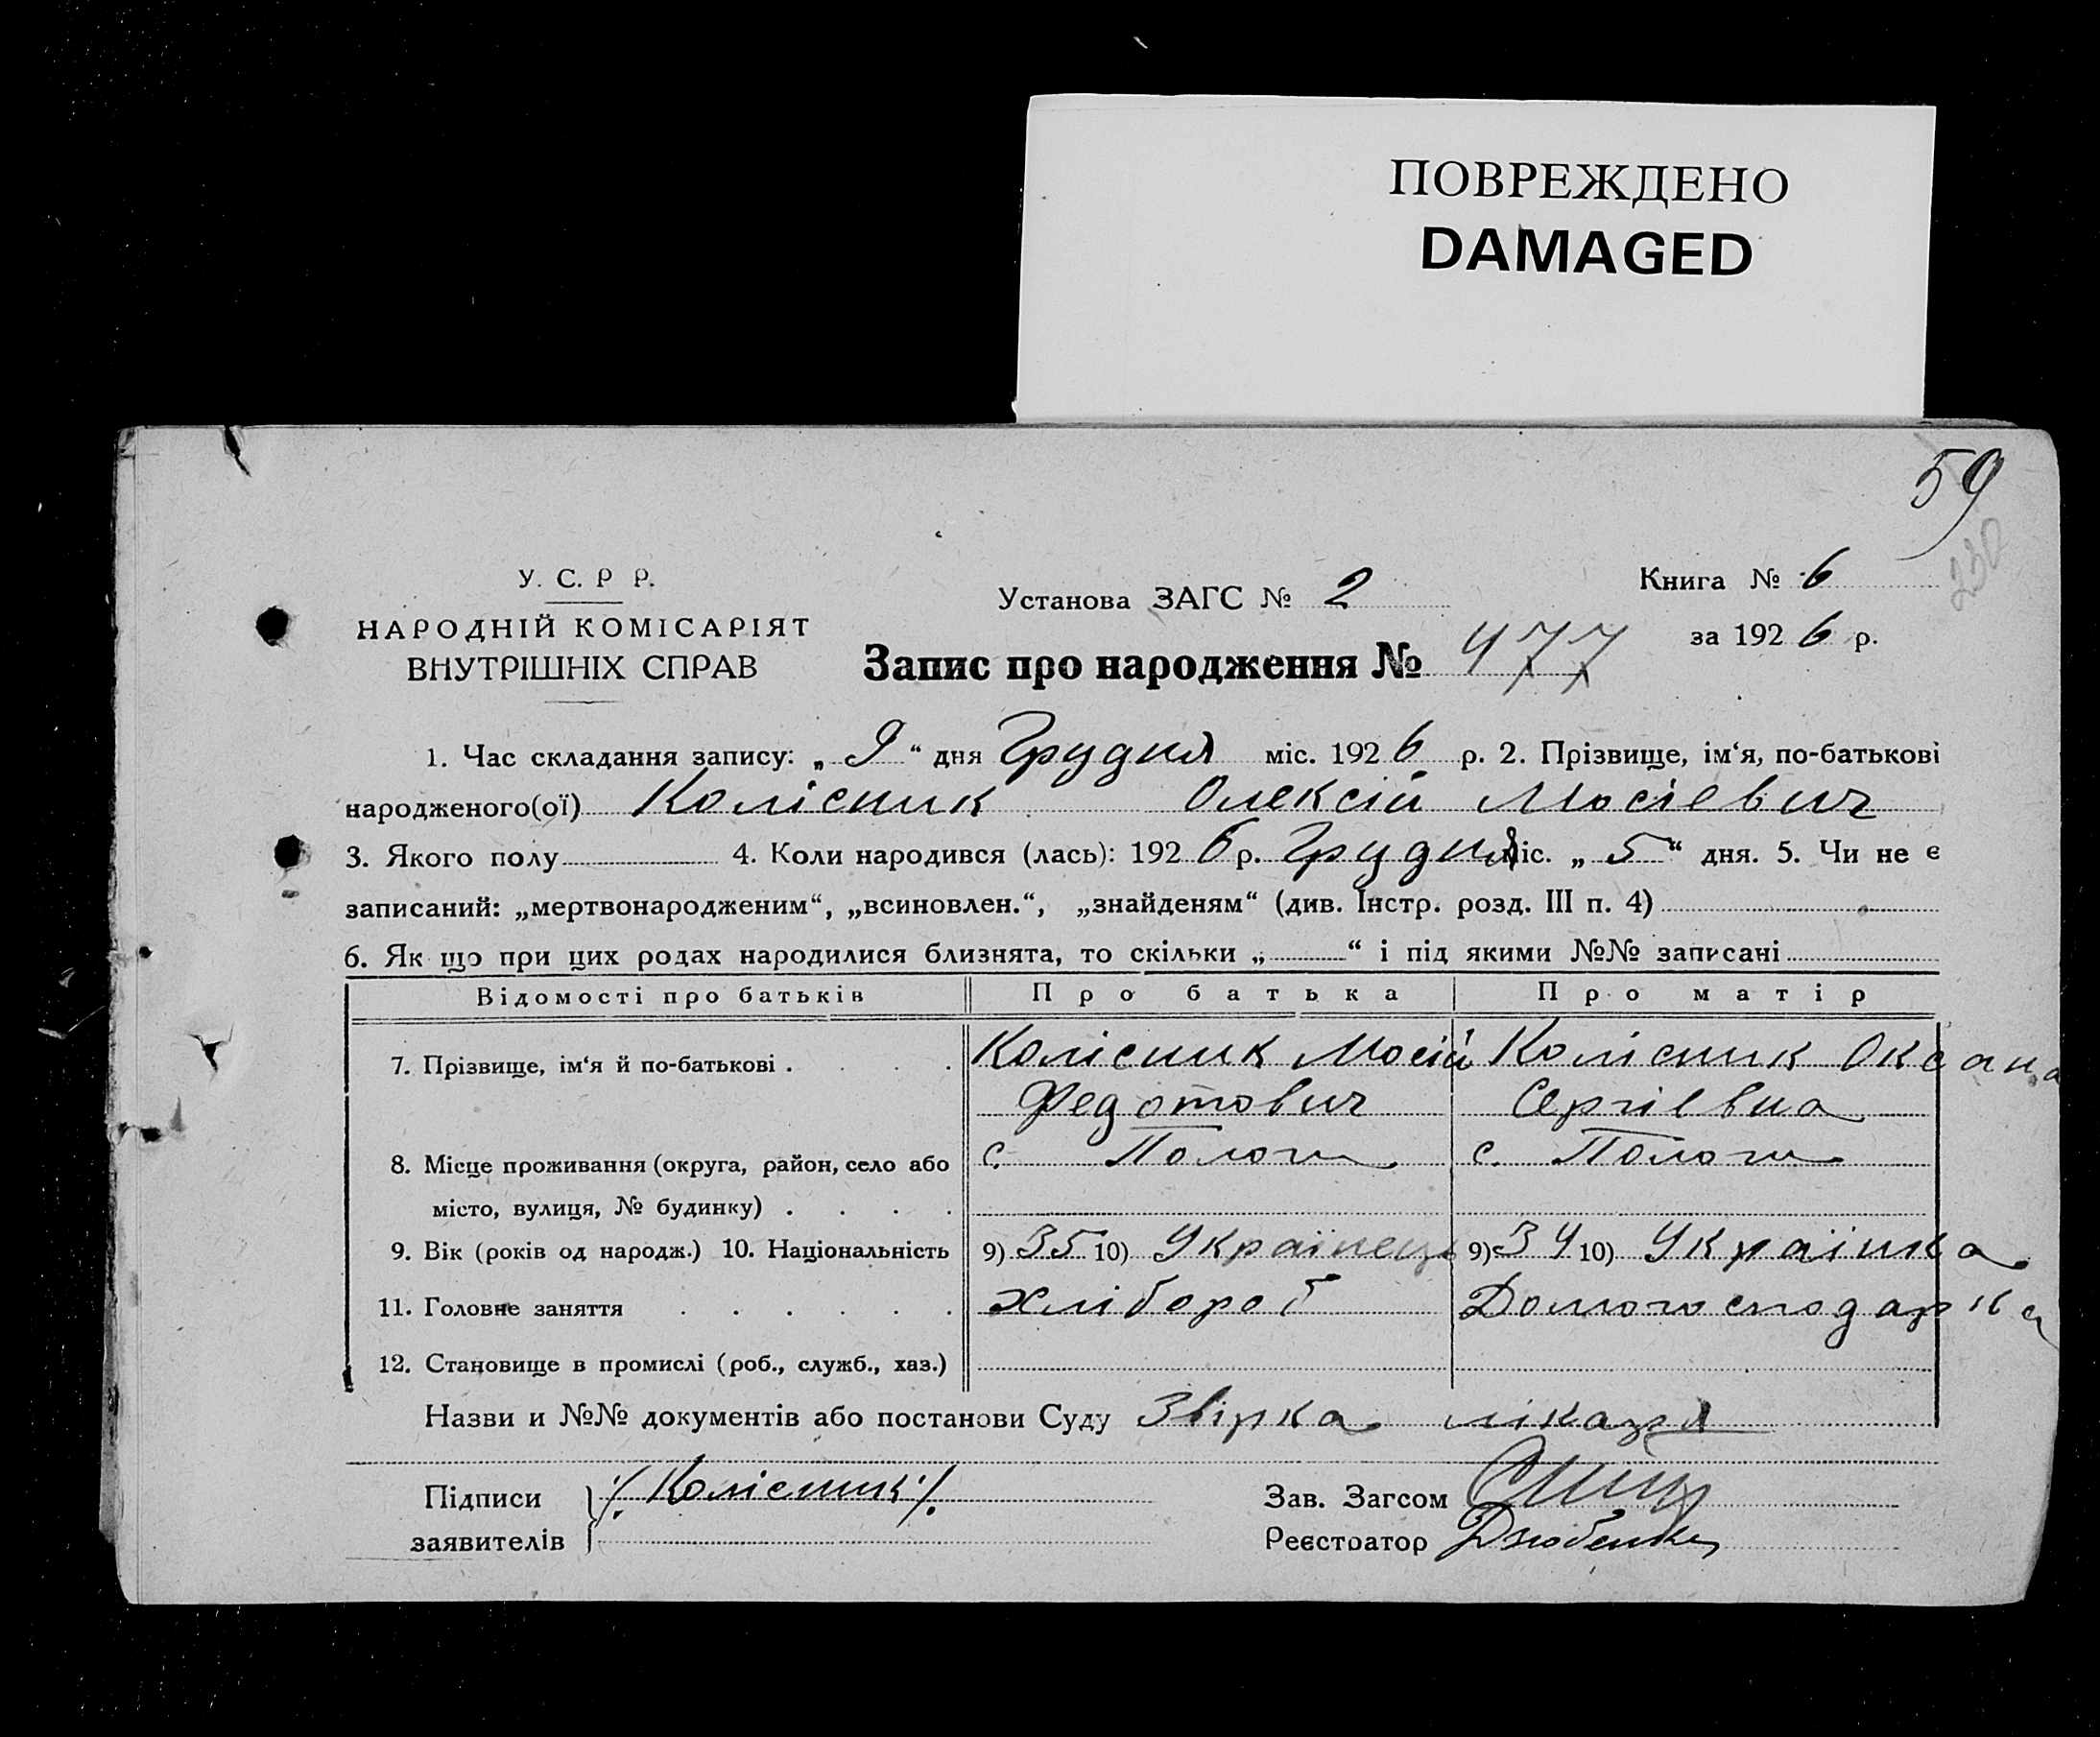 ПОВРЕЖДЕНО
DAMAGED
59
230
У. С. Р Р.
НАРОДНІЙ КОМІСАРІЯТ
ВНУТРІШНІХ СПРАВ
Установа ЗАГС № 2
Книга № 6
за 1926 р.
Запис про народження № 477
1. Час складання запису: „ 9 “ дня Грудня міс. 1926 р. 2. Прізвище, ім‘я, по-батькові
народженого(ої) Колісник Олексій Мосієвич
3. Якого полу 4. Коли народився (лась): 1926 р. Грудня міс. „ 5 “ дня. 5. Чи не є
записаний: „мертвонародженим“, „всиновлен.“, „знайденям“ (див. Інстр. розд. III п. 4)
6. Як що при цих родах народилися близнята, то скільки „ “ і під якими №№ записані
Відомості про батьків Про батька Про матір
7. Прізвище, ім‘я й по-батькові . . . . Колісник Мосій Колісник Оксана
Федотович Сергієвна
8. Місце проживання (округа, район, село або с. Пологи с. Пологи
місто, вулиця, № будинку) . . . .
9. Вік (років од народж.) 10. Національність 9) 35 10) Українець 9) 34 10) Українка
11. Головне заняття . . . . . . Хлібороб Домогосподарка
12. Становище в промислі (роб., служб., хаз.)
Назви и №№ документів або постанови Суду Звірка лікаря
Підписи /Колісник/ Зав. Загсом
заявителів Реєстратор Дзюбенко